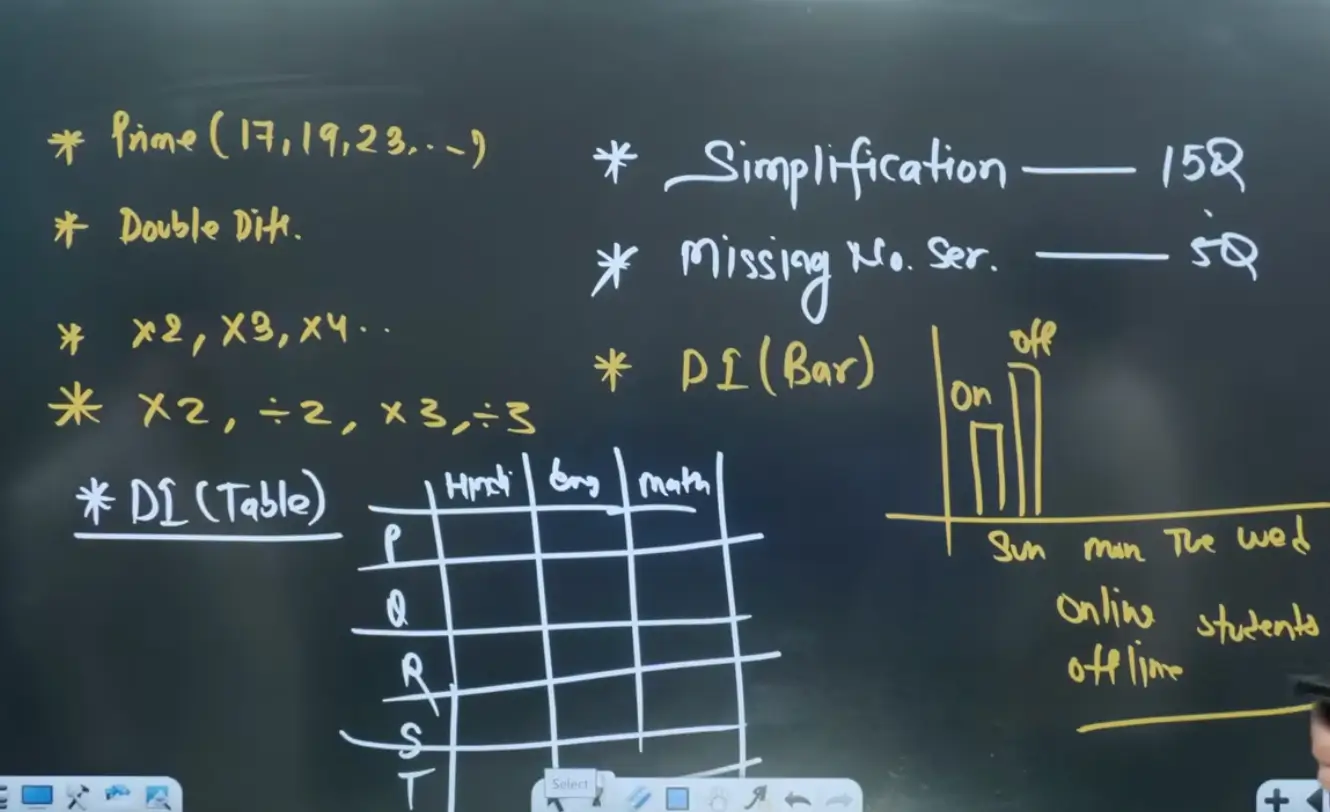 * Prime (17, 19, 23, ...)
* Double Diff.
* ×2, ×3, ×4 ..
* ×2, ÷2, ×3, ÷3
* Simplification —— 15Q
* Missing No. Ser. —— 5Q
* DI (Bar)
on
off
Sun mon Tue wed
online students
offline
* DI (Table)
Hindi Eng math
P
Q
R
S
T
Select